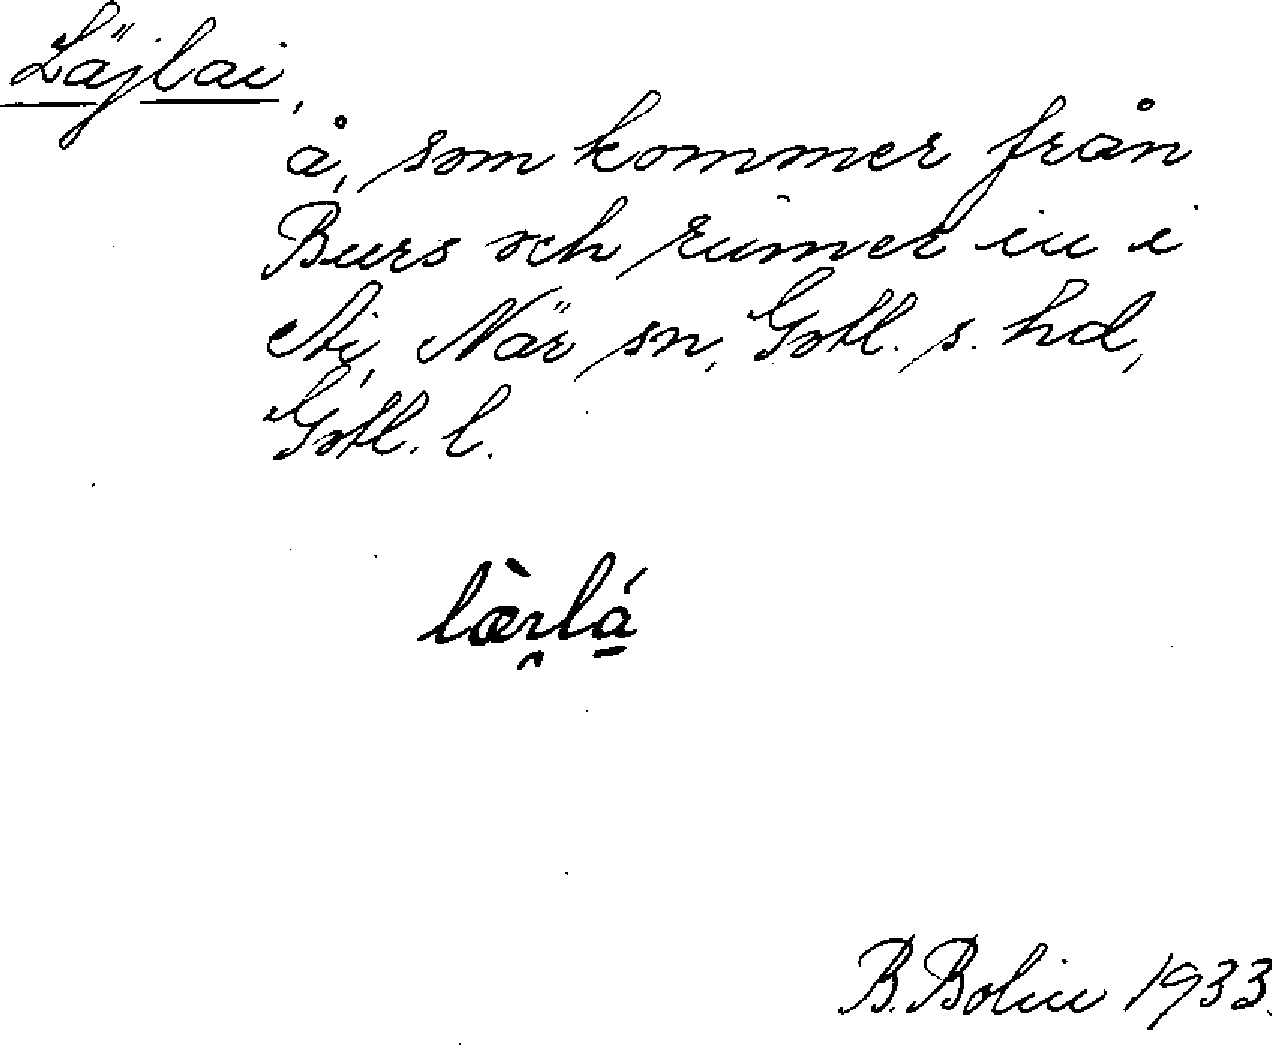 Läjlai,
å, som kommer från
Burs och rin̄er in i
Ai, När sn, Gotl. s. hd,
Gotl. l.
B. Bolin 1933.